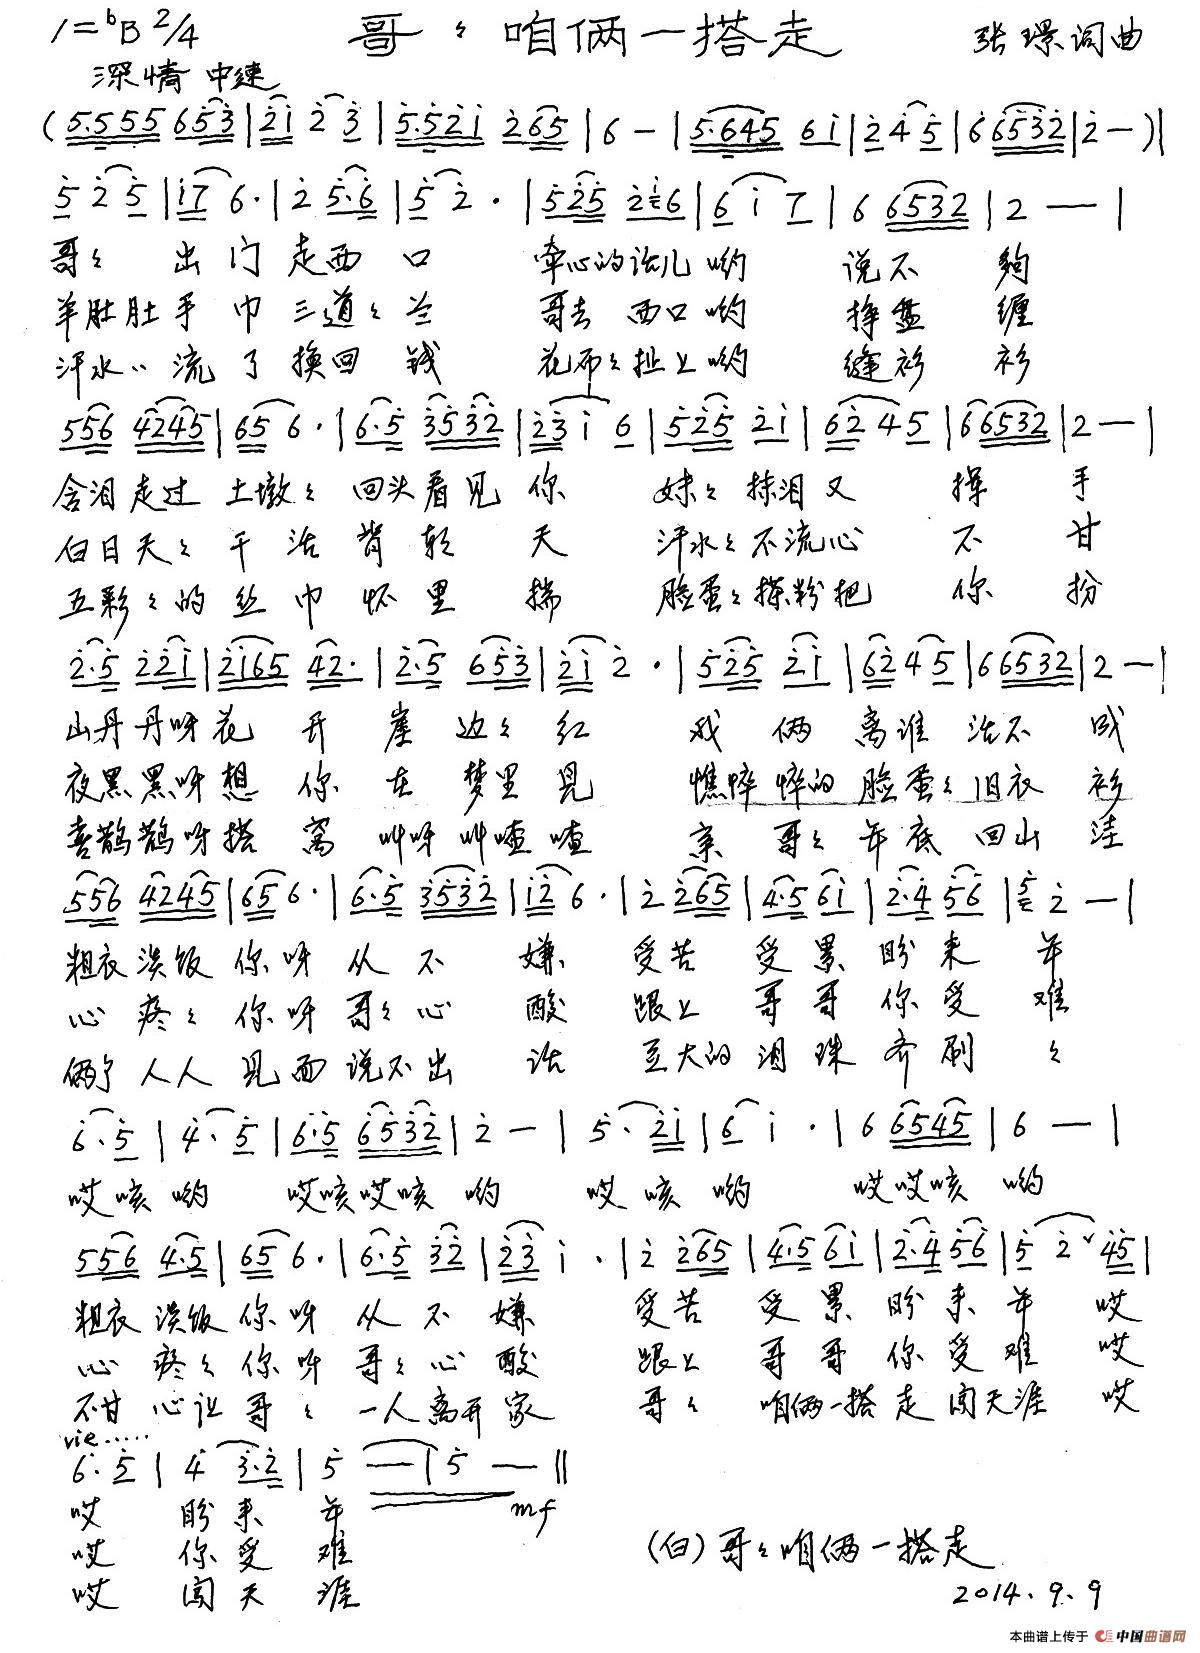 1=ᵇB 2/4 哥々咱俩一搭走 张璟词曲
深情 中速
(5.555 653|21 2 3|5.521 265|6 —|5.645 61|2 4 5|6 6532|2 —)|
5 2 5|17 6.|2 5.6|5 2.|525 216|6 1 7|6 6532|2 —|
哥々 出门走西口 牵心的话儿哟 说不 够
羊肚肚手巾三道々兰 哥去西口哟 挣盘 缠
汗水〃流了换回钱 花布々扯上哟 缝衫 衫
556 4245|65 6.|6.5 3532|23 1 6|525 21|62 45|6 6532|2 —|
含泪走过土墩々回头看见你 妹々抹泪又 挥 手
白日天々干活背朝天 汗水々不流心 不 甘
五彩々的丝巾怀里揣 脸蛋々搽粉把 你 扮
2.5 221|2165 42.|2.5 653|21 2.|525 21|62 45|6 6532|2 —|
山丹丹呀花开崖边々红 我俩离谁活不成
夜黑黑呀想你在梦里见 憔悴悴的脸蛋々旧衣衫
喜鹊鹊呀搭窝叫呀叫喳喳 亲哥々年底回山洼
556 4245|65 6.|6.5 3532|12 6.|2 265|4.5 61|2.4 56|5 2 —|
粗衣淡饭你呀从不嫌 受苦受累盼来年
心疼々你呀哥々心酸 跟上哥哥你受难
俩个人人见面说不出话 豆大的泪珠齐刷々
6.5|4.5|6.5 6532|2 —|5.21|6 1.|6 6545|6 —|
哎咳哟 哎咳哎咳哟 哎咳哟 哎哎咳哟
556 4.5|65 6.|6.5 32|23 1.|2 265|4.5 61|2.4 56|5 2ᵛ45|
粗衣淡饭你呀从不嫌 受苦受累盼来年 哎
心疼々你呀哥々心酸 跟上哥哥你受难 哎
不甘心让哥々一人离开家 哥々咱俩一搭走闯天涯 哎
vie.....
6.5|4 3.2|5 —|5 —‖
mf
哎 盼来年
哎 你受难
哎 闯天涯
(白)哥々咱俩一搭走
2014.9.9
本曲谱上传于 中国曲谱网